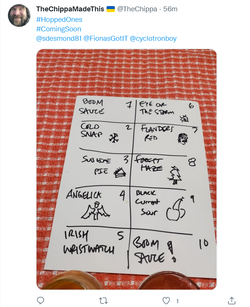 TheChippaMadeThis 🇺🇦 @TheChippa · 56m
#HoppedOnes
#ComingSoon
@sdesmond81 @FionasGotIT @cyclotronboy
BOOM SAUCE 1
COLD SNAP 2
3
PIE
ANGELICA 4
IRISH WRISTWATCH 5
EYE OF THE STORM 6
FLANDERS RED 7
FOREST MAZE 8
BLACK CURRANT SOUR 9
BOOM SAUCE! 10
1